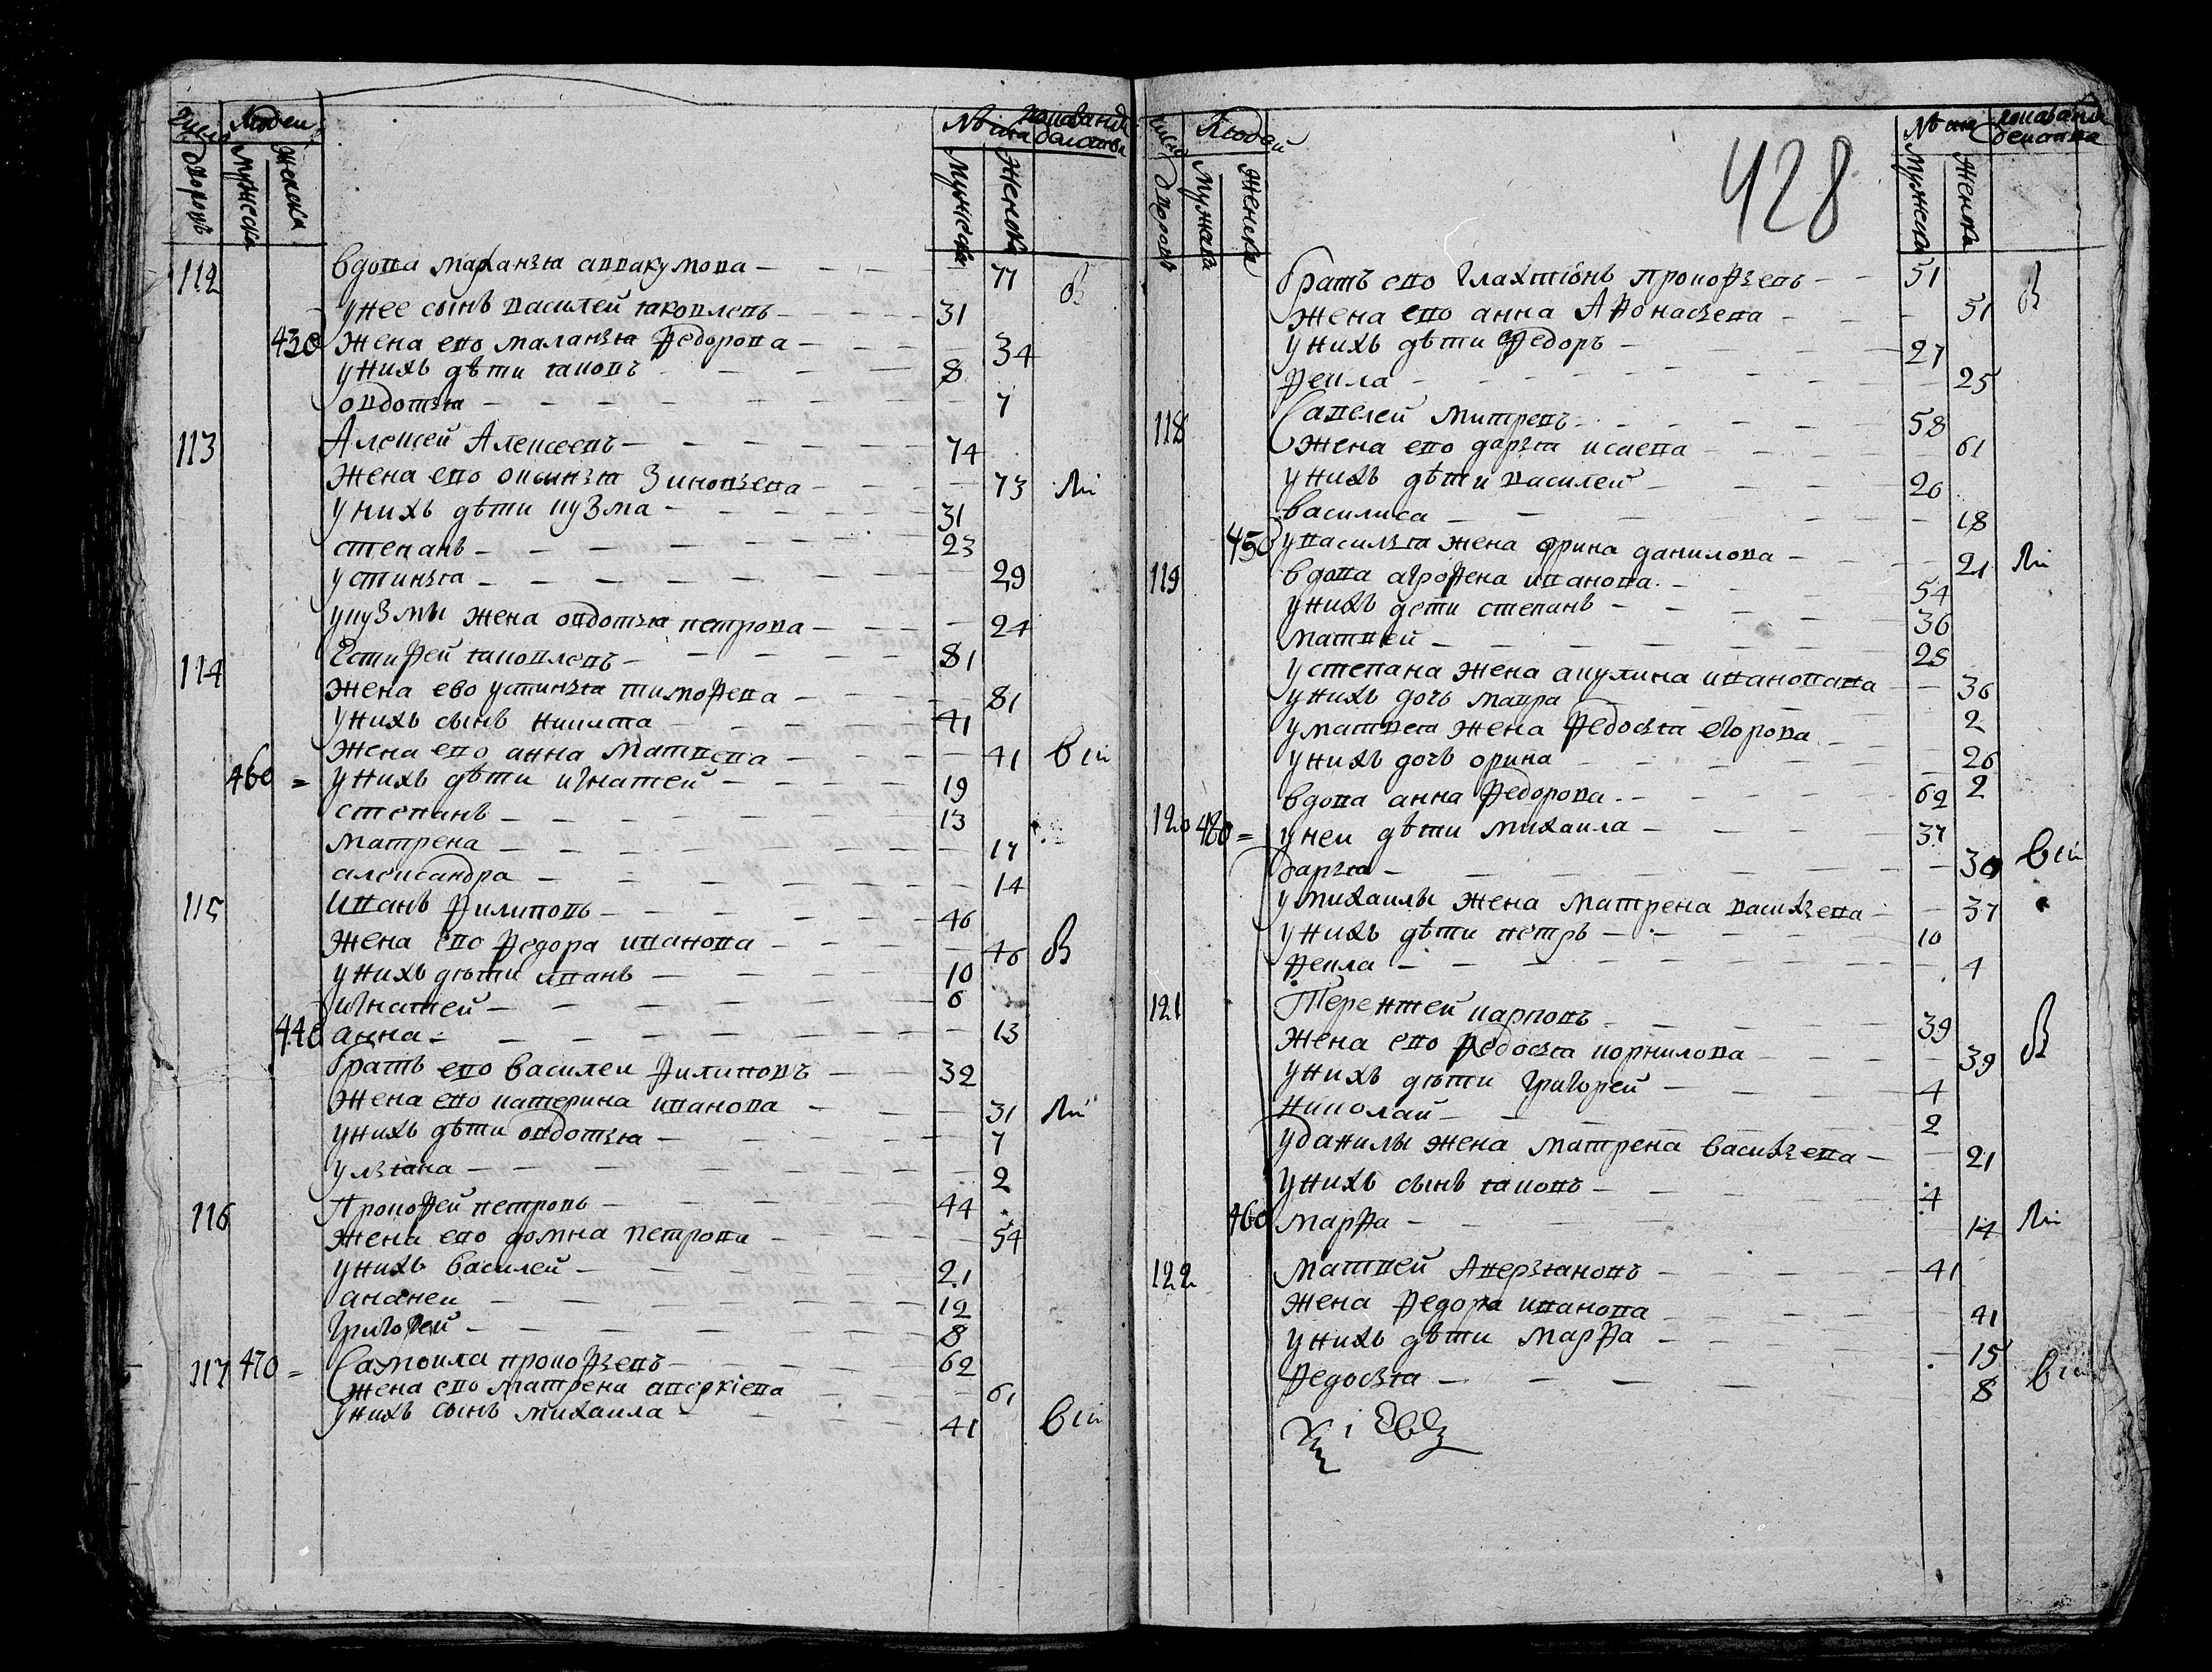 Число Людей № лета показани действа
дворовъ мужеска женска мужеска женска
112 вдова маланья аввакумова 77 в
у нее сынъ василей яковлевъ 31
430 жена ево маланья федорова 34
у нихъ дѣти яковъ 8
овдотья 7
113 Алексей Алексеевъ 74
жена ево оксинья Зиновьева 73
у нихъ дѣти кузма 31
степанъ 23
устинья 29
у кузмы жена овдотья петрова 24
114 Естифей яковлевъ 81
жена ево устинья тимофева 81
у нихъ сынъ никита 41
жена ево анна матвева 41
460 = у нихъ дѣти игнатей 19
степанъ 13
матрена 17
александра 14
115 иванъ филиповъ 46
жена ево федора иванова 46 в
у нихъ дѣти иванъ 10
игнатей 6
440 анна 13
братъ ево василеи филиповъ 32
жена ево катерина иванова 31
у нихъ дѣти овдотья 7
ульяна 2
116 Прокофей петровъ 44
жена ево домна петрова 54
у нихъ василей 21
ананеи 12
григорей 8
117 470 = Самоила прокофьевъ 62
жена ево матрена аверкiева 61
у нихъ сынъ михаила 41
428
число Людей № лета показани действа
дворовъ мужеска женска мужеска женска
братъ ево галахтiонъ прокофьевъ 51 в
жена ево анна Афонасьева 51
у нихъ дѣти федоръ 27
фекла 25
118 Савелей митревъ 58
жена ево дарья исаева 61
у нихъ дѣти василей 20
василиса 18
450 у василья жена орина данилова 21
119 вдова агрофена иванова 54
у нихъ дети степанъ 36
матвей 28
у степана жена акулина иванова 36
у нихъ дочь мавра 2
у матвея жена федосья егорова 26
у нихъ дочь орина 2
вдова анна федорова 62
120 480 = у неи дѣти михаила 37
дарья 30
у михаилы жена матрена васильева 37
у нихъ дѣти петръ 10
фекла 4
121 Терентей карповъ 39
жена ево федосья корнилова 39 в
у нихъ дѣти григорей 4
николаи 2
у данилы жена матрена васильева 21
у нихъ сынъ яковъ 4
460 марфа 14
122 матвей Аверьяновъ 41
жена федора иванова 41
у нихъ дѣти марфа 15
федосья 8